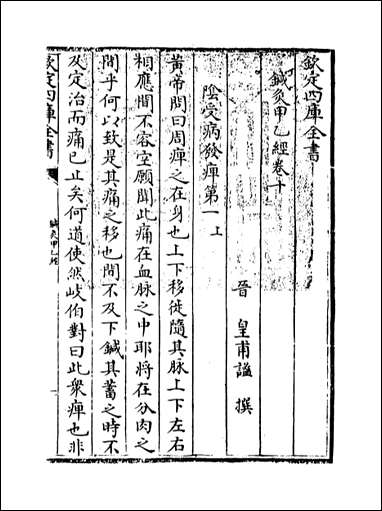 欽定四庫全書
鍼灸甲乙經卷十
晉 皇甫謐 撰
陰受病發痺第一上
黄帝問曰周痺之在身也上下移徙隨其脉上下左右
相應間不容空願聞此痛在血脉之中耶將在分肉之
間乎何以致是其痛之移也間不及下鍼其蓄之時不
及定治而痛已止矣何道使然岐伯對曰此衆痺也非
欽定四庫全書
鍼灸甲乙經